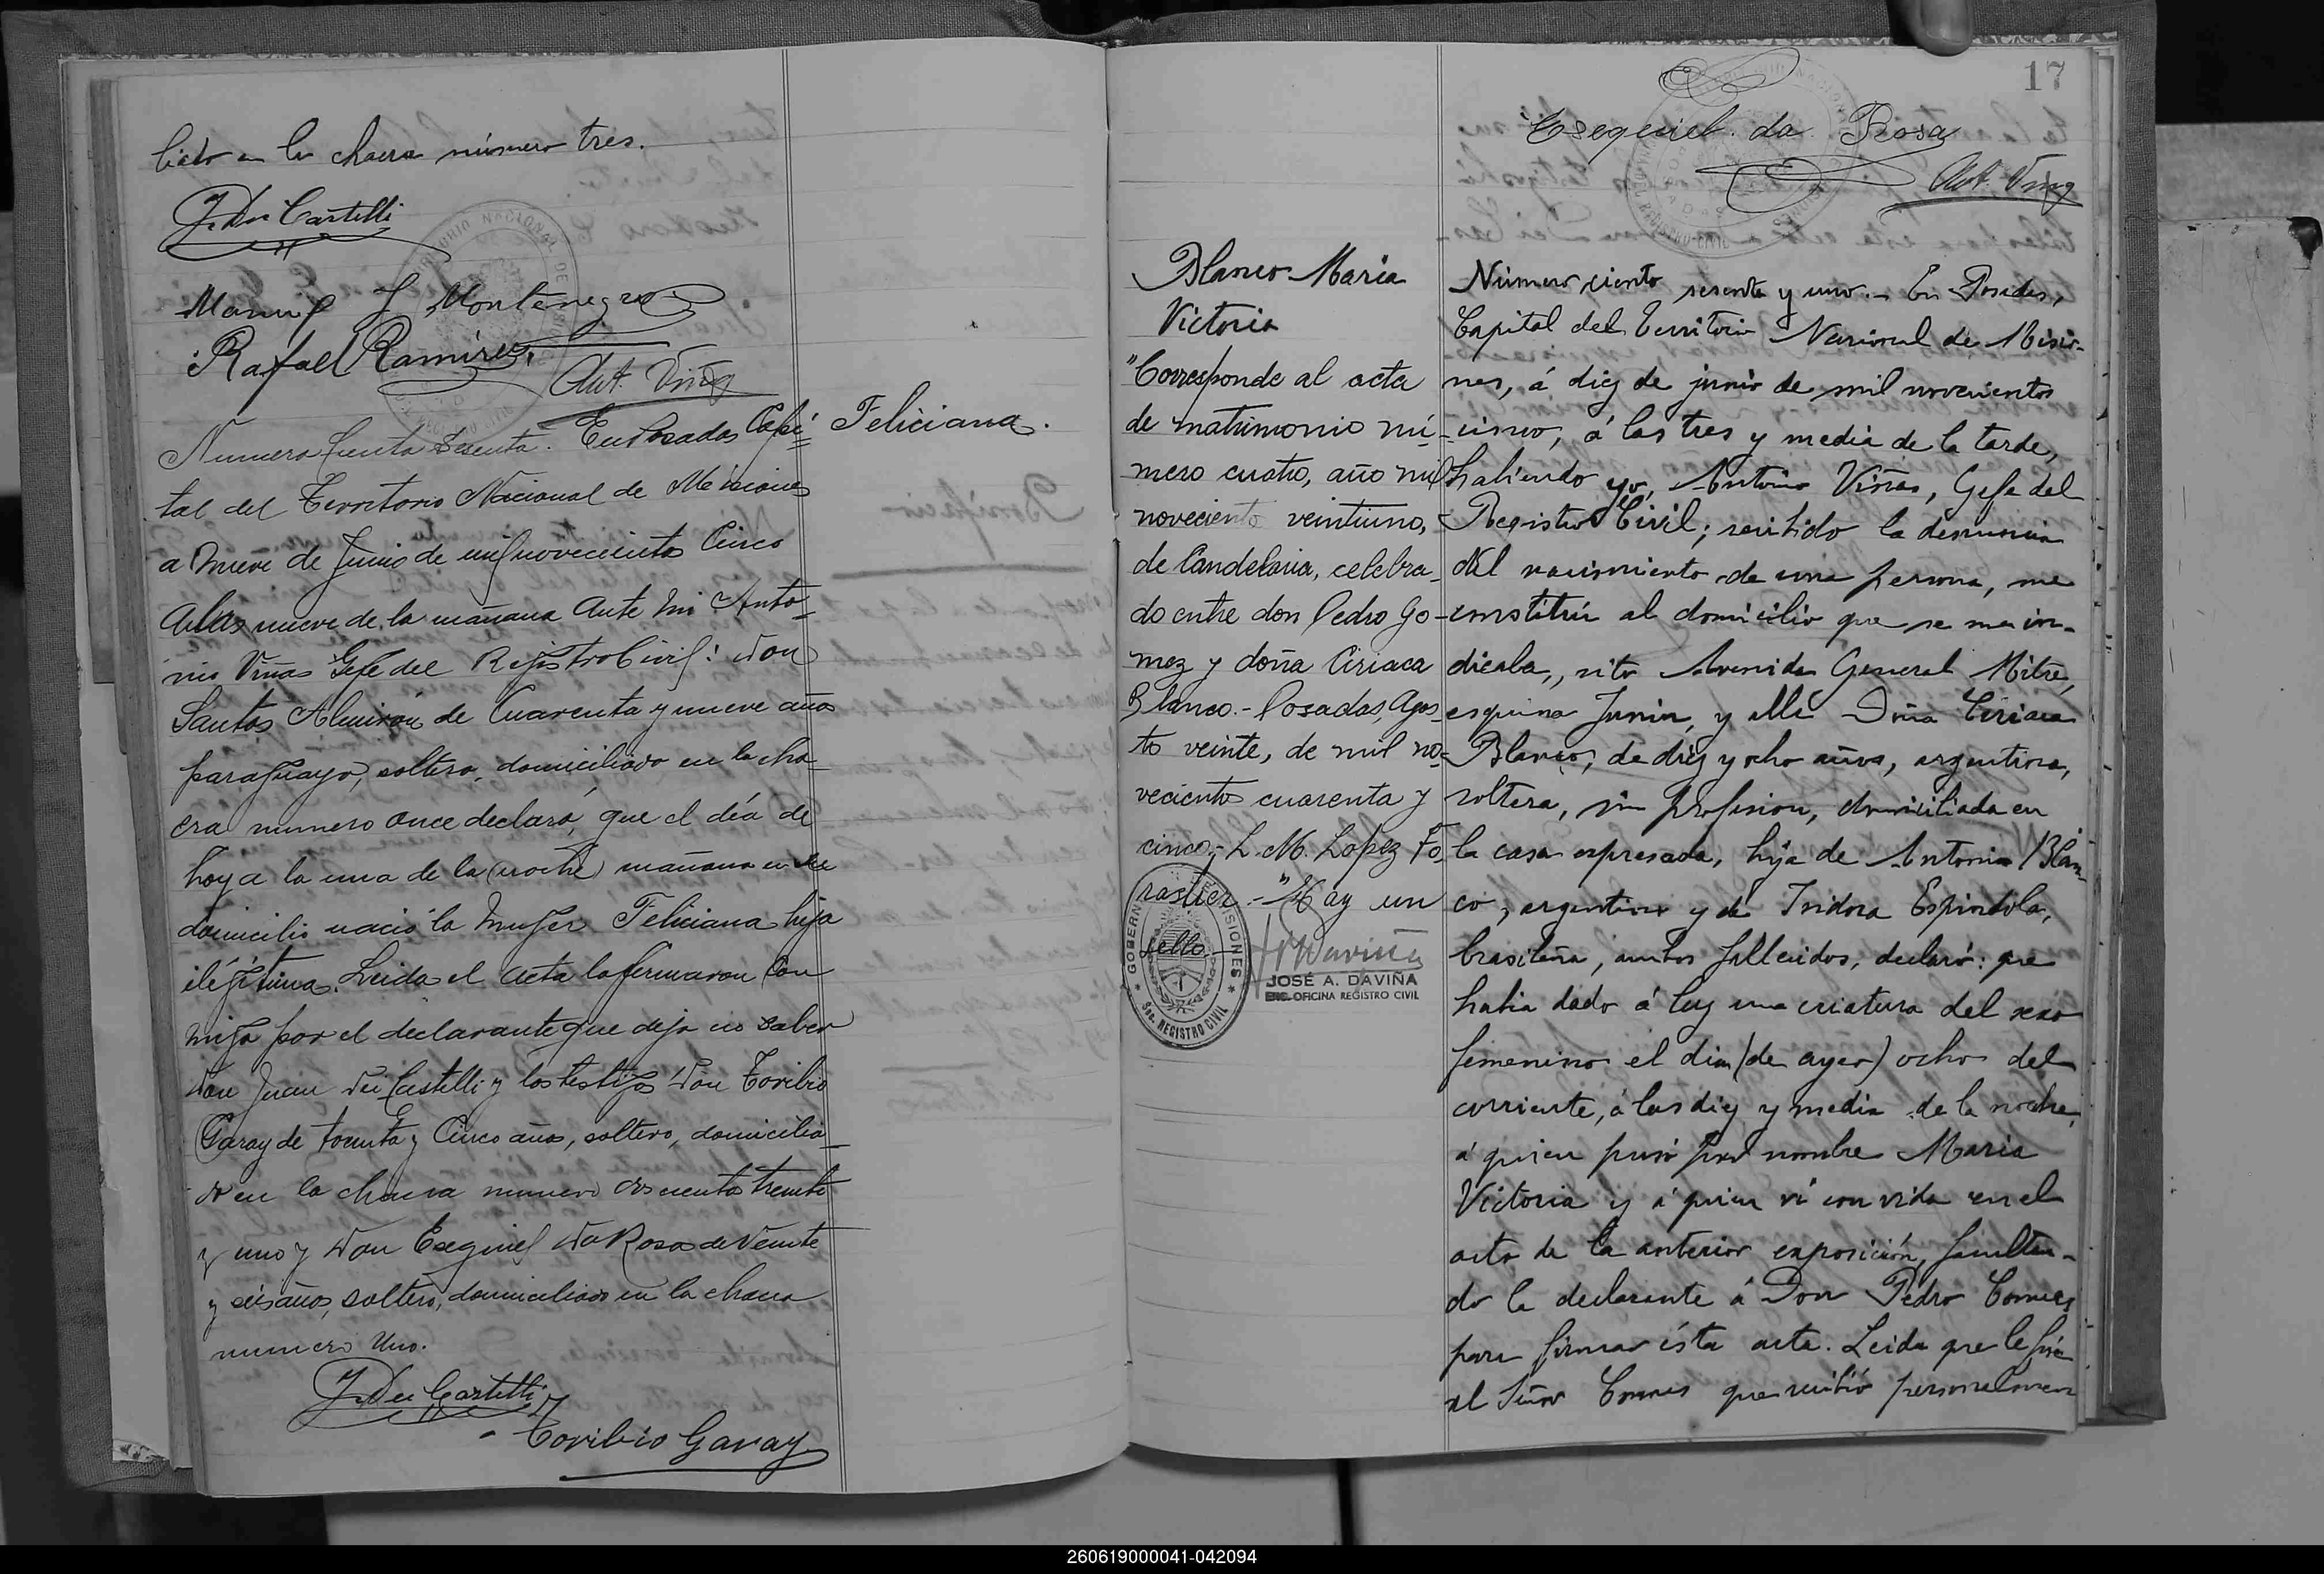 liado en la chacra número tres.
J. Dei Castelli
Manuel J. Montenegro
Rafael Ramírez,
Ant. Viñas
Numero Ciento Sesenta. En Posadas Capi= Feliciana.
tal del Territorio Nacional de Misiones
a nueve de Junio de mil novecientos Cinco
a las nueve de la mañana Ante mi Anto=
nio Viñas Gefe del Registro Civil: Don
Santos Almirón de Cuarenta y nueve años
paraguayo, soltero, domiciliado en la cha=
cra numero once declaró, que el día de
hoy a la una de la (noche) mañana en su
domicilio nació la mujer Feliciana hija
ilegítima. Leida el acta la firmaron con
migo por el declarante que dijo no saber
Don Juan Dei Castelli y los testigos Don Toribio
Garay de treinta y Cinco años, soltero, domicilia=
do en la chacra numero doscientos treinta
y uno y Don Esequiel da Rosa de Veinte
y seis años, soltero, domiciliado en la chacra
numero Uno.
J. Dei Castelli
Toribio Garay
17
Esequiel da Rosa
Ant. Viñas
Blanco Maria
Victoria
"Corresponde al acta
de matrimonio nú-
mero cuatro, año mil
noveciento veintiuno,
de Candelaria, celebra-
do entre don Pedro Go-
mez y doña Ciriaca
Blanco.- Posadas, Agos-
to veinte, de mil no-
vecientos cuarenta y
cinco.- L. M. Lopez Fo
rastier.-" Hay un
sello.-
JOSÉ A. DAVIÑA
ENC. OFICINA REGISTRO CIVIL
GOBERN MISIONES
Sec. REGISTRO CIVIL
Número ciento sesenta y uno.- En Posadas,
Capital del Territorio Nacional de Misio-
nes, á diez de junio de mil novecientos
cinco, á las tres y media de la tarde,
habiendo yo, Antonio Viñas, Gefe del
Registro Civil; recibido la denuncia
del nacimiento de una persona, me
constituí al domicilio que se me in-
dicaba, sito Avenida General Mitre,
esquina Junin, y allí Doña Ciriaca
Blanco, de diez y ocho años, argentina,
soltera, sin profesion, domiciliada en
la casa expresada, hija de Antonio Blan-
co, argentino y de Isidora Espindola,
brasileña, ambos fallecidos, declaró: que
habia dado á luz una criatura del sexo
femenino el dia (de ayer) ocho del
corriente, á las diez y media de la noche,
á quien puso por nombre Maria
Victoria y á quien ví con vida en el
acto de la anterior exposición, facultan-
do la declarante á Don Pedro Gomes
para firmar ésta acta. Leida que le fué
al Señor Gomes que recibió personalmen
260619000041-042094